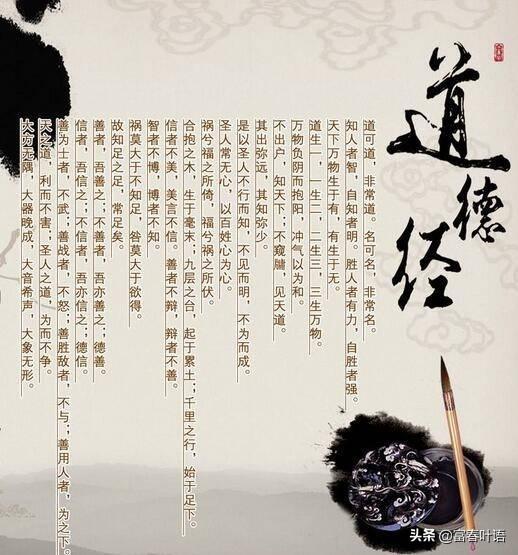 道德经
道可道，非常道。名可名，非常名。
知人者智，自知者明。胜人者有力，自胜者强。
天下万物生于有，有生于无。
道生一，一生二，二生三，三生万物。
万物负阴而抱阳，冲气以为和。
不出户，知天下；不窥牖，见天道。
其出弥远，其知弥少。
是以圣人不行而知，不见而明，不为而成。
圣人常无心，以百姓心为心。
祸兮福之所倚，福兮祸之所伏。
合抱之木，生于毫末；九层之台，起于累土；千里之行，始于足下。
信者不美，美言不信。善者不辩，辩者不善。
智者不博，博者不知。
祸莫大于不知足，咎莫大于欲得。
故知足之足，常足矣。
善者，吾善之；不善者，吾亦善之；德善。
信者，吾信之；不信者，吾亦信之；德信
善为士者，不武；善战者，不怒；善胜敌者，不与；善用人者，为之下。
天之道，利而不害；圣人之道，为而不争。
大方无隅，大器晚成，大音希声，大象无形。
头条 @富春叶语